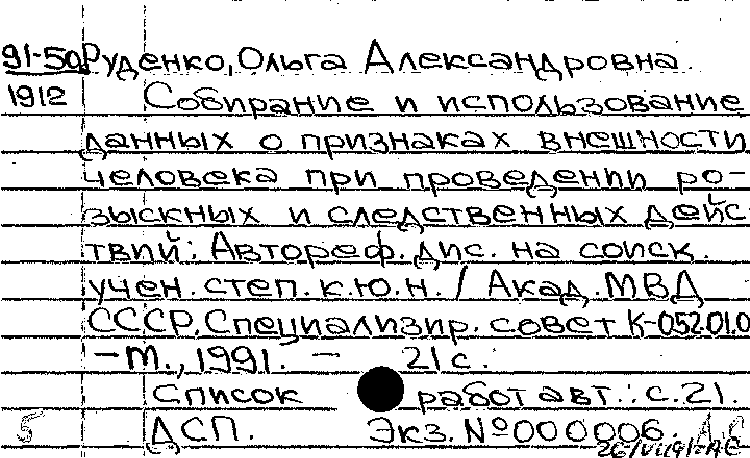 91-50 Руденко, Ольга Александровна.
1912 Собирание и использование
данных о признаках внешности
человека при проведении ро-
зыскных и следственных дейс-
твий: Автореф. дис. на соиск.
учен. степ. к.ю.н. / Акад. МВД
СССР, Специализир. совет К-052.01.0
– М., 1991. – 21 с.
Список работ авт.: с. 21.
5 ДСП. Экз. № 000006.